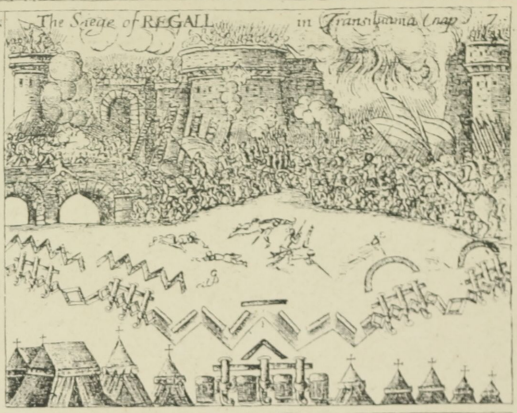 The Siege of REGALL in Transilvania Chap 7.